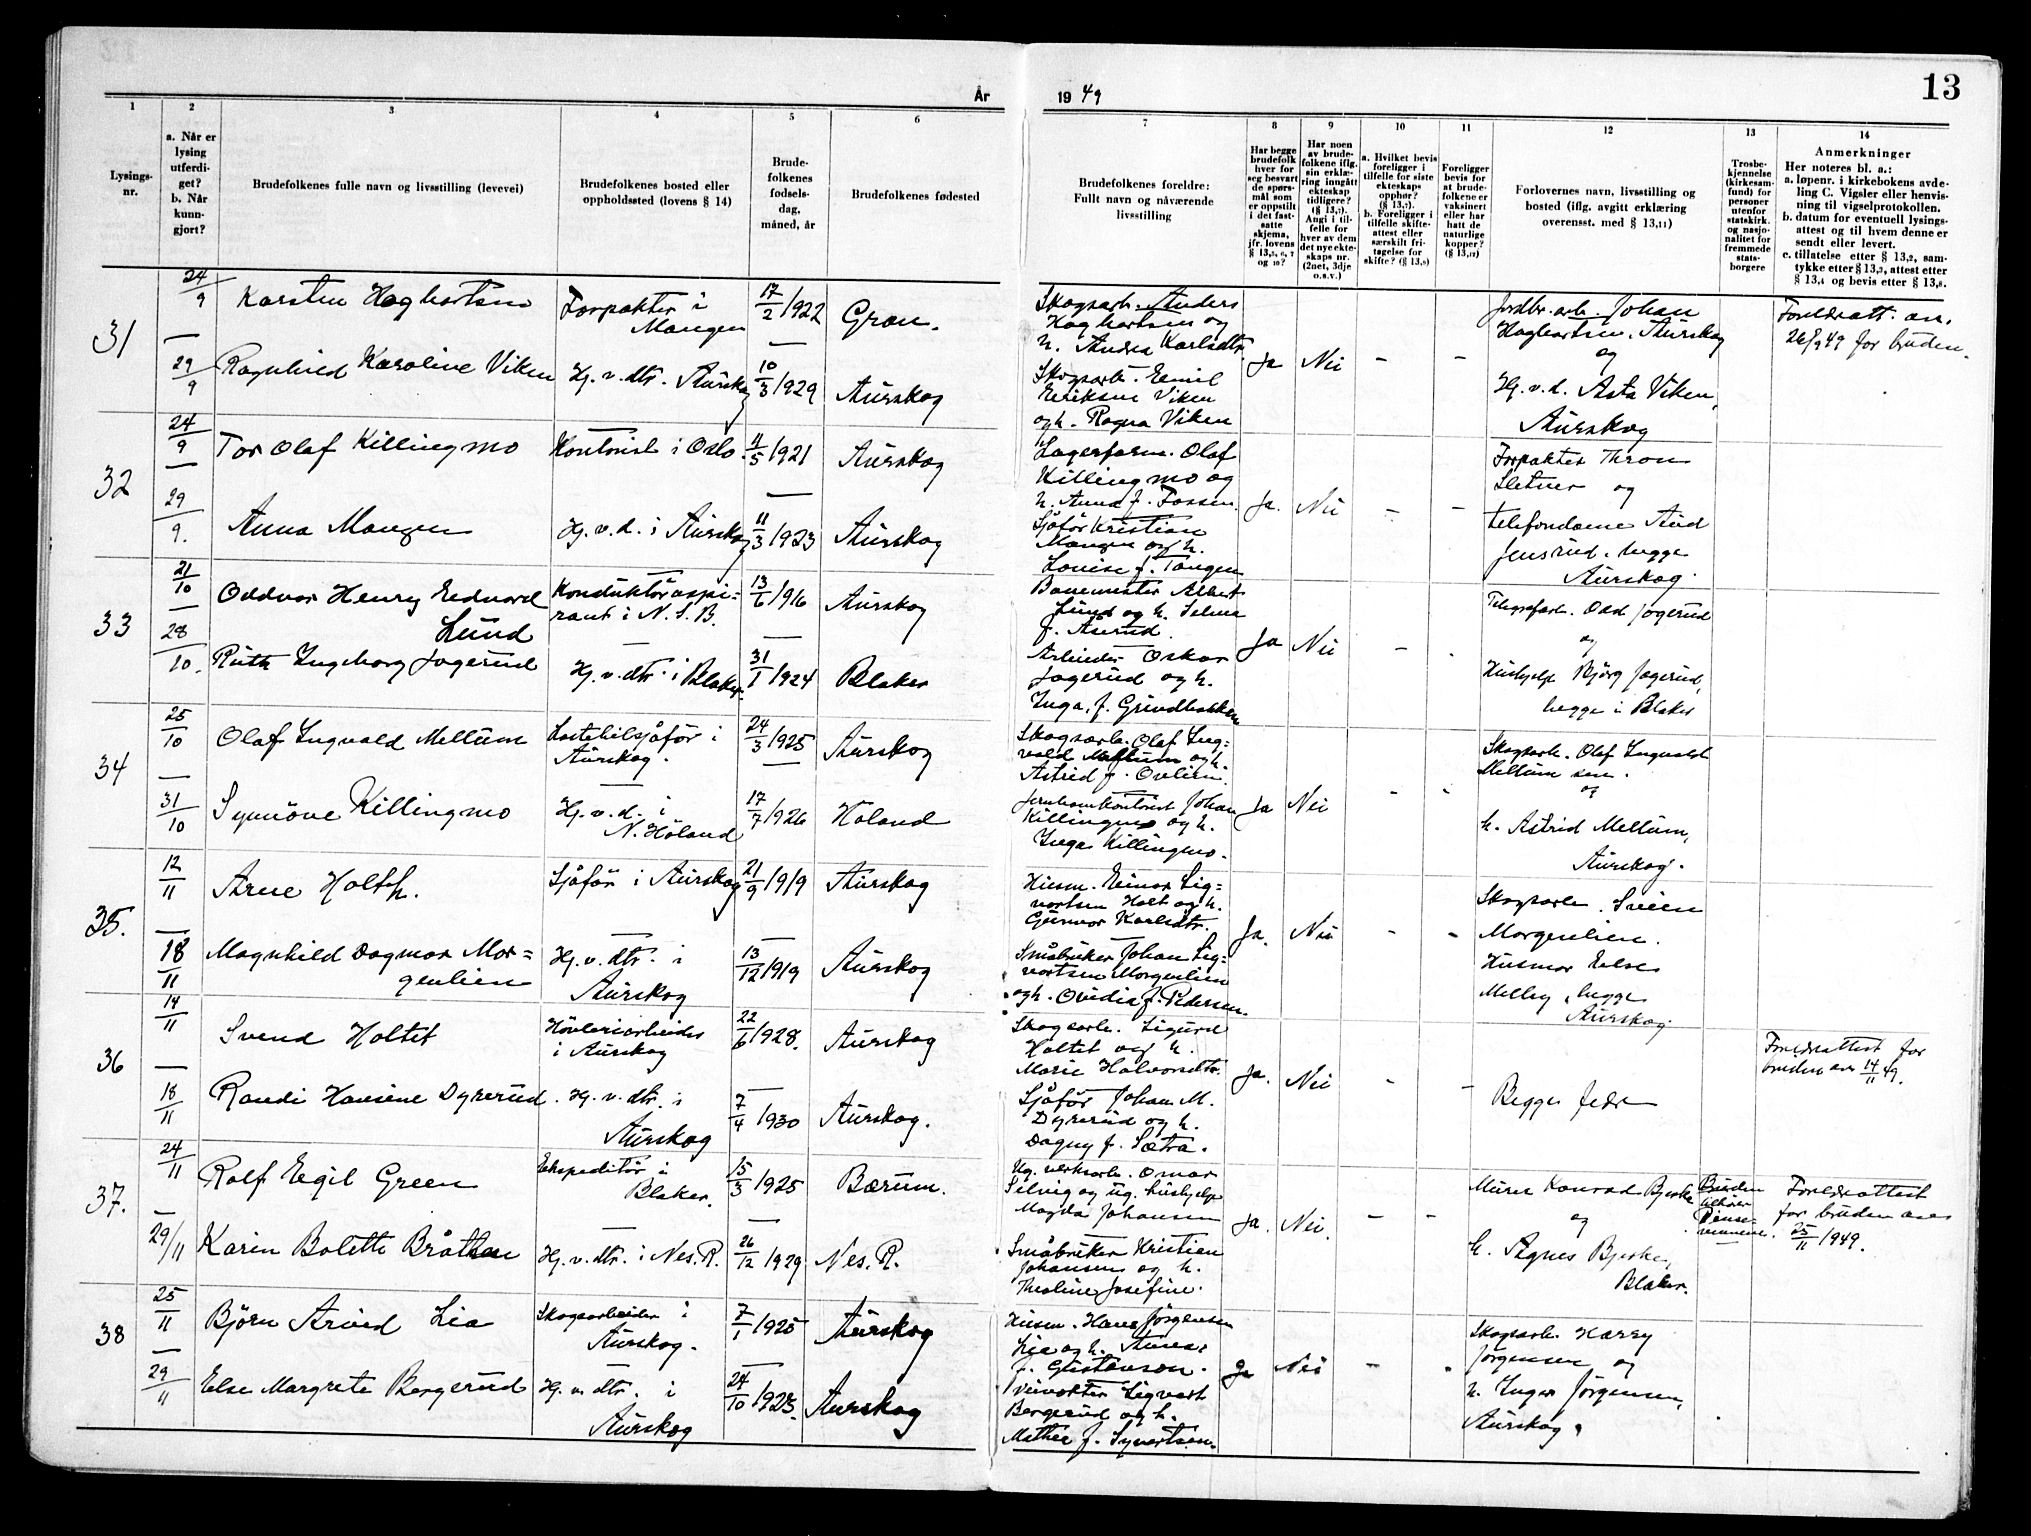 År
19 49
13
1
2
3
4
5
6
7
8
9
10
11
12
13
14
Lysings-
nr.
a. Når er
lysing
utferdi-
get?
b. Når
kunn-
gjort?
Brudefolkenes fulle navn og livsstilling (levevei)
Brudefolkenes bosted eller
oppholdssted (lovens § 14)
Brude-
folkenes
fødsels-
dag,
måned, år
Brudefolkenes fødested
Brudefolkenes foreldre:
Fullt navn og nåværende
livsstilling
Har begge
brudefolk
hver for
seg besvart
de spørs-
mål som
er oppstilt
i det fast-
satte
skjema,
jfr. lovens
§ 13,5, 6, 7
og 10?
Har noen
av brude-
folkene iflg.
sin erklæ-
ring inngått
ekteskap
tidligere?
(§ 13,7).
Angi i til-
felle for
hver av dem
det nye ekte-
skaps nr.
(2net, 3dje
o.s.v.)
a. Hvilket bevis
foreligger i
tilfelle for siste
ekteskaps
opphør?
(§ 13,7).
b. Foreligger i
tilfelle skifte-
attest eller
særskilt fri-
tagelse for
skifte? (§ 13,8)
Foreligger
bevis for
at brude-
folkene er
vaksinert
eller har
hatt de
naturlige
kopper?
(§ 13,12)
Forlovernes navn, livsstilling og
bosted (iflg. avgitt erklæring
overensst. med § 13,11)
Trosbe-
kjennelse
(kirkesam-
fund) for
personer
utenfor
statskirk.
og nasjo-
nalitet for
fremmede
stats-
borgere
Anmerkninger
Her noteres bl. a.:
a. løpenr. i kirkebokens avde-
ling C. Vigsler eller henvis-
ning til vigselprotokollen.
b. datum for eventuell lysings-
attest og til hvem denne er
sendt eller levert.
c. tillatelse etter § 13,2, sam-
tykke etter § 13,3, attest etter
§ 13,4 og bevis etter § 13,8.
31
24/9
Karsten Hagbartsen
Forpakter i
Mangen
17/2 1922
Gran.
—
29/9
Ragnhild Karoline Viken
Hj. v. dtr. Aurskog
10/3 1929
Aurskog
Skogsarb. Anders
Hagbartsen og
h. Andrea Karlsdtr.
Skogsarb. Emil
Eriksen Viken
og h. Ragna Viken
Ja
Nei
–
–
Jordbr.arb. Johan
Hagbartsen. Aurskog
og
Hj. v. d. Asta Viken,
Aurskog
Foreldratt. av.
26/9 49 for bruden.
32
24/9
Tor Olaf Killingmo
Kontorist i Oslo.
11/5 1921
Aurskog
—
29/9.
Anna Mangen
Hj. v. d. i Aurskog
11/3 1923
Aurskog
Lagerform. Olaf
Killingmo og
h. Anna f. Fossen.
Sjåfør Kristian
Mangen og h.
Louise f. Tangen
Ja.
Nei
–
–
Forpakter Thron
Sletner og
telefondame Aud
Jensrud. begge
Aurskog.
33
21/10
Oddvar Henry Edvard
Lund
Konduktøraspi=
rant i N.S.B.
13/6 1916
Aurskog
—
28/10.
Ruth Ingeborg Jogerud
Hj. v. dtr. i Blaker.
31/1 1924
Blaker
Banemester Albert
Lund og h. Selma
f. Åserud.
Arbeider Oskar
Jogerud og h.
Inga, f. Grindbakken
Ja
Nei
–
.
Telegrafarb. Odd Jogerud
og
Hushjelp Bjørg Jogerud,
begge i Blaker
34
25/10
Olaf Ingvald Mellum
Lastebilsjåfør i
Aurskog.
24/3 1925
Aurskog
—
31/10
Synnöve Killingmo
Hj. v. d. i
N. Höland
17/7 1926
Höland
Skogsarb. Olaf Ing=
vald Mellum og h.
Astrid f. Ovlien.
Jernbanekontorist Johan
Killingmo og h.
Inga Killingmo.
Ja
Nei
-
-
Skogsarb. Olaf Ingvald
Mellum sen.
og
h. Astrid Mellum,
Aurskog.
35.
12/11
Arne Holth.
Sjåför i Aurskog
21/9 1919
Aurskog
—
18/11
Magnhild Dagmar Mor=
genlien
Hj. v. dtr. i
Aurskog
13/12 1919
Aurskog
Husm. Einar Sig=
vartsen Holt og h.
Gunvor Karlsdtr.
Småbruker Johan Sig=
vartsen Morgenlien
og h. Ovidia f. Pedersen.
Ja.
Nei
-
-
Skogsarb. Svein
Morgenlien.
Husmor Else
Melby, begge
Aurskog.
36
14/11
Svend Holtet
Høvleriarbeider
i Aurskog
22/6 1928.
Aurskog
—
18/11
Randi Hansine Dyrerud.
Hj. v. dtr. i
Aurskog
7/4 1930
Aurskog.
Skogsarb. Sigurd
Holtet og h.
Marie Halvorsdtr.
Sjåfør Johan M.
Dyrerud og h.
Dagny f. Sætra.
Ja.
Nei
-
-
Begges fedre
Foreldreattest for
bruden av 14/11 49.
37.
24/11
Rolf Egil Green
Ekspeditör i
Blaker.
15/3 1925
Bærum.
—
29/11
Karin Bolette Bråthen
Hj. v. dtr. i Nes. R.
26/12 1929
Nes. R.
Ug. verksarb. Omar
Selvig og ug. hushjelp
Magda Johansen
Småbruker Kristian
Johansen og h.
Tholine Josefine.
Ja.
Nei.
–
–
Murer Konrad Bjerke
og
h. Agnes Bjerke,
Blaker.
Bruden
tilhører
Pinse-
vennene.
Foreldreattest
for bruden av
25/11 1949.
38
25/11
Björn Arvid Lia
Skogsarbeider i
Aurskog.
7/1 1925
Aurskog
—
29/11
Else Margrete Bergerud
Hj. v. dtr. i
Aurskog
24/10 1923.
Aurskog
Husm. Hans Jørgensen
Lia og h. Anna,
f. Gustavson.
Veivokter Sigvart
Bergerud og h.
Mathea f. Syvertsen.
Ja
Nei
–
.
Skogsarb. Harry
Jørgensen og
h. Inger Jørgensen,
Aurskog.